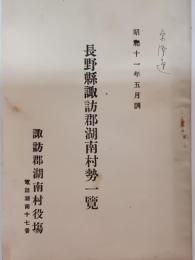 昭和十一年五月調
長野縣諏訪郡湖南村勢一覽
諏訪郡湖南村役場
電話湖南十七番